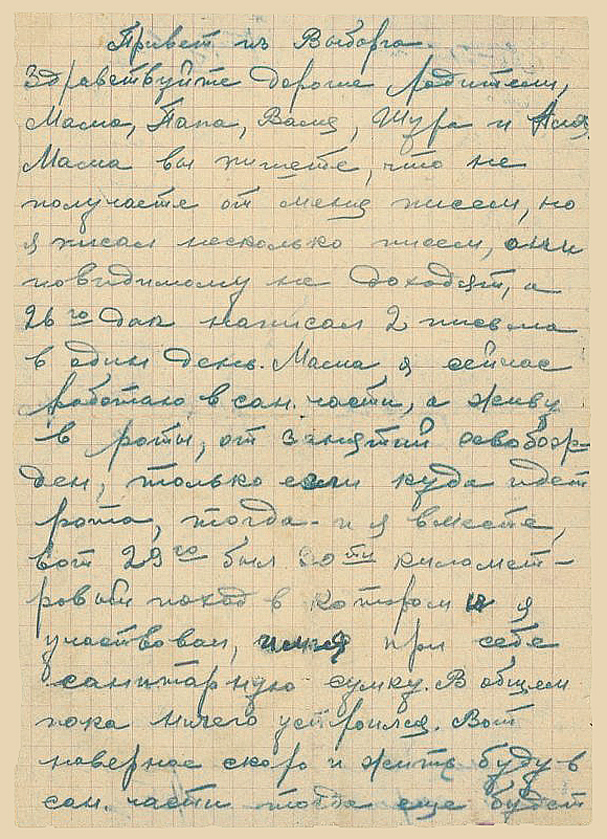 Привет из Выборга.
Здравствуйте дорогие родители,
Мама, Папа, Валя, Шура и
Мама вы пишете, что не
получаете от меня писем, но
я писал несколько писем, они
повидимому не доходят, а
26го дал написал 2 письма
в один день. Мама, я сейчас
работаю в сан. части, а живу
в роты, от занятий освобож
ден, только если куда идет
рота, тогда и я вместе,
вот 29го был 30ти километ-
ровый поход в котором и я
участвовал, имея при себе
санитарную сумку. В общем
пока ничего устроился. Вот
наверное скоро и жить буду в
сан. части тогда еще будет